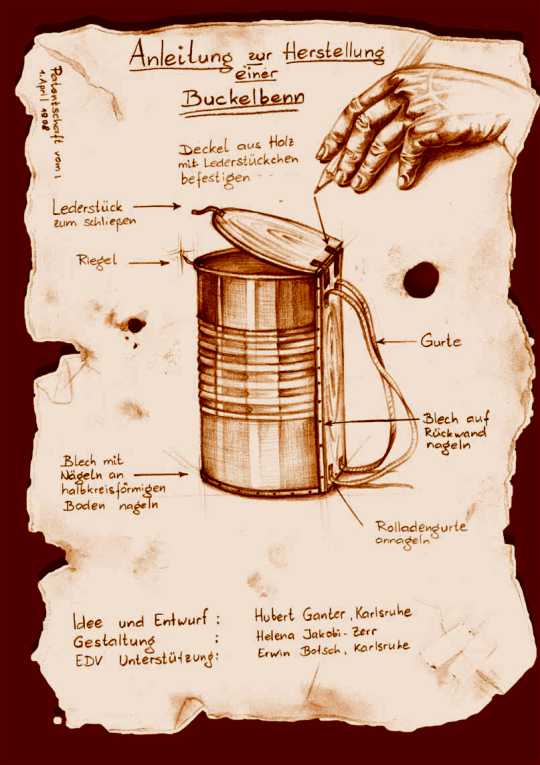 Anleitung zur Herstellung
einer
Buckelbenn
Patentschaft vom
1. April 1808
Deckel aus Holz
mit Lederstückchen
befestigen
Lederstück
zum schließen
Riegel
Gurte
Blech auf
Rückwand
nageln
Blech mit
Nägeln an
halbkreisförmigen
Boden nageln
Rolladengurte
annageln
Idee und Entwurf : Hubert Ganter, Karlsruhe
Gestaltung : Helena Jakobi-Zerr
EDV Unterstützung: Erwin Botsch, Karlsruhe